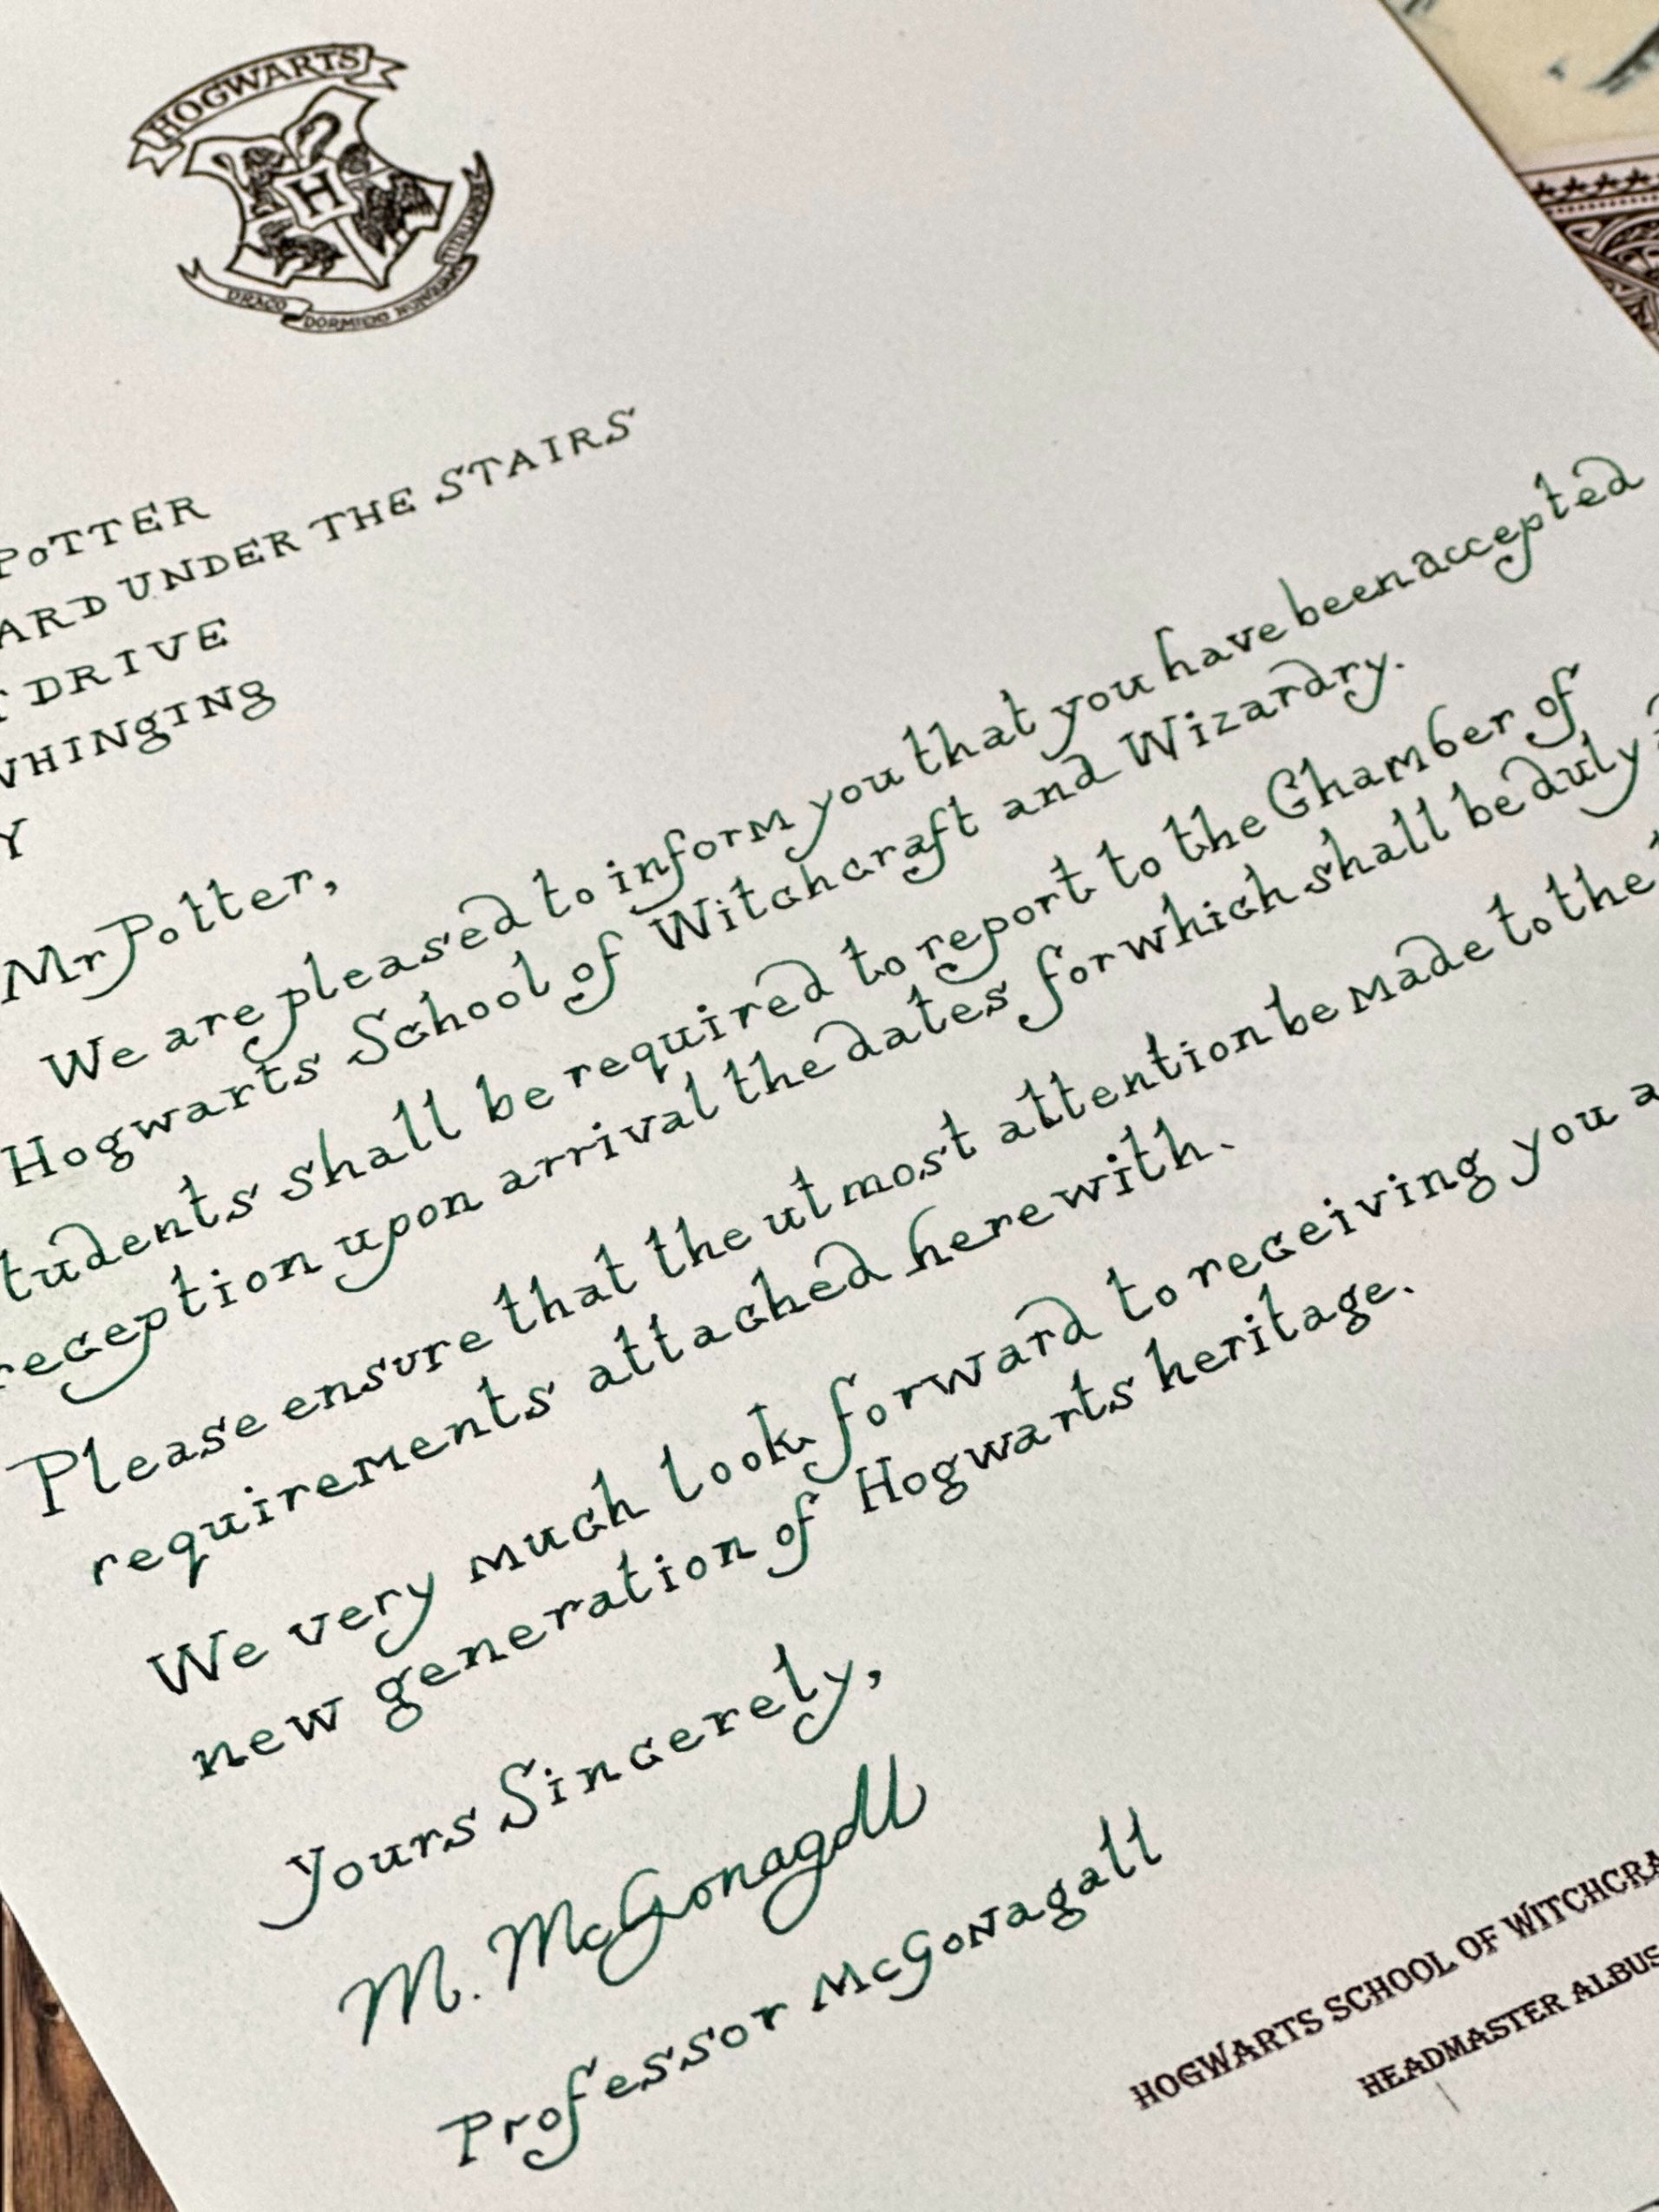 HOGWARTS
H
DRACO DORMIENS NUNQUAM TITILLANDUS
POTTER
ARD UNDER THE STAIRS
T DRIVE
WHINGING
Y
Mr Potter,
We are pleased to inform you that you have been accepted
Hogwarts School of Witchcraft and Wizardry.
tudents shall be required to report to the Chamber of
reception upon arrival the dates for which shall be duly a
Please ensure that the utmost attention be made to the l
requirements attached herewith.
We very much look forward to receiving you a
new generation of Hogwarts heritage.
Yours Sincerely,
M. McGonagall
Professor McGonagall
HOGWARTS SCHOOL OF WITCHCRA
HEADMASTER ALBUS